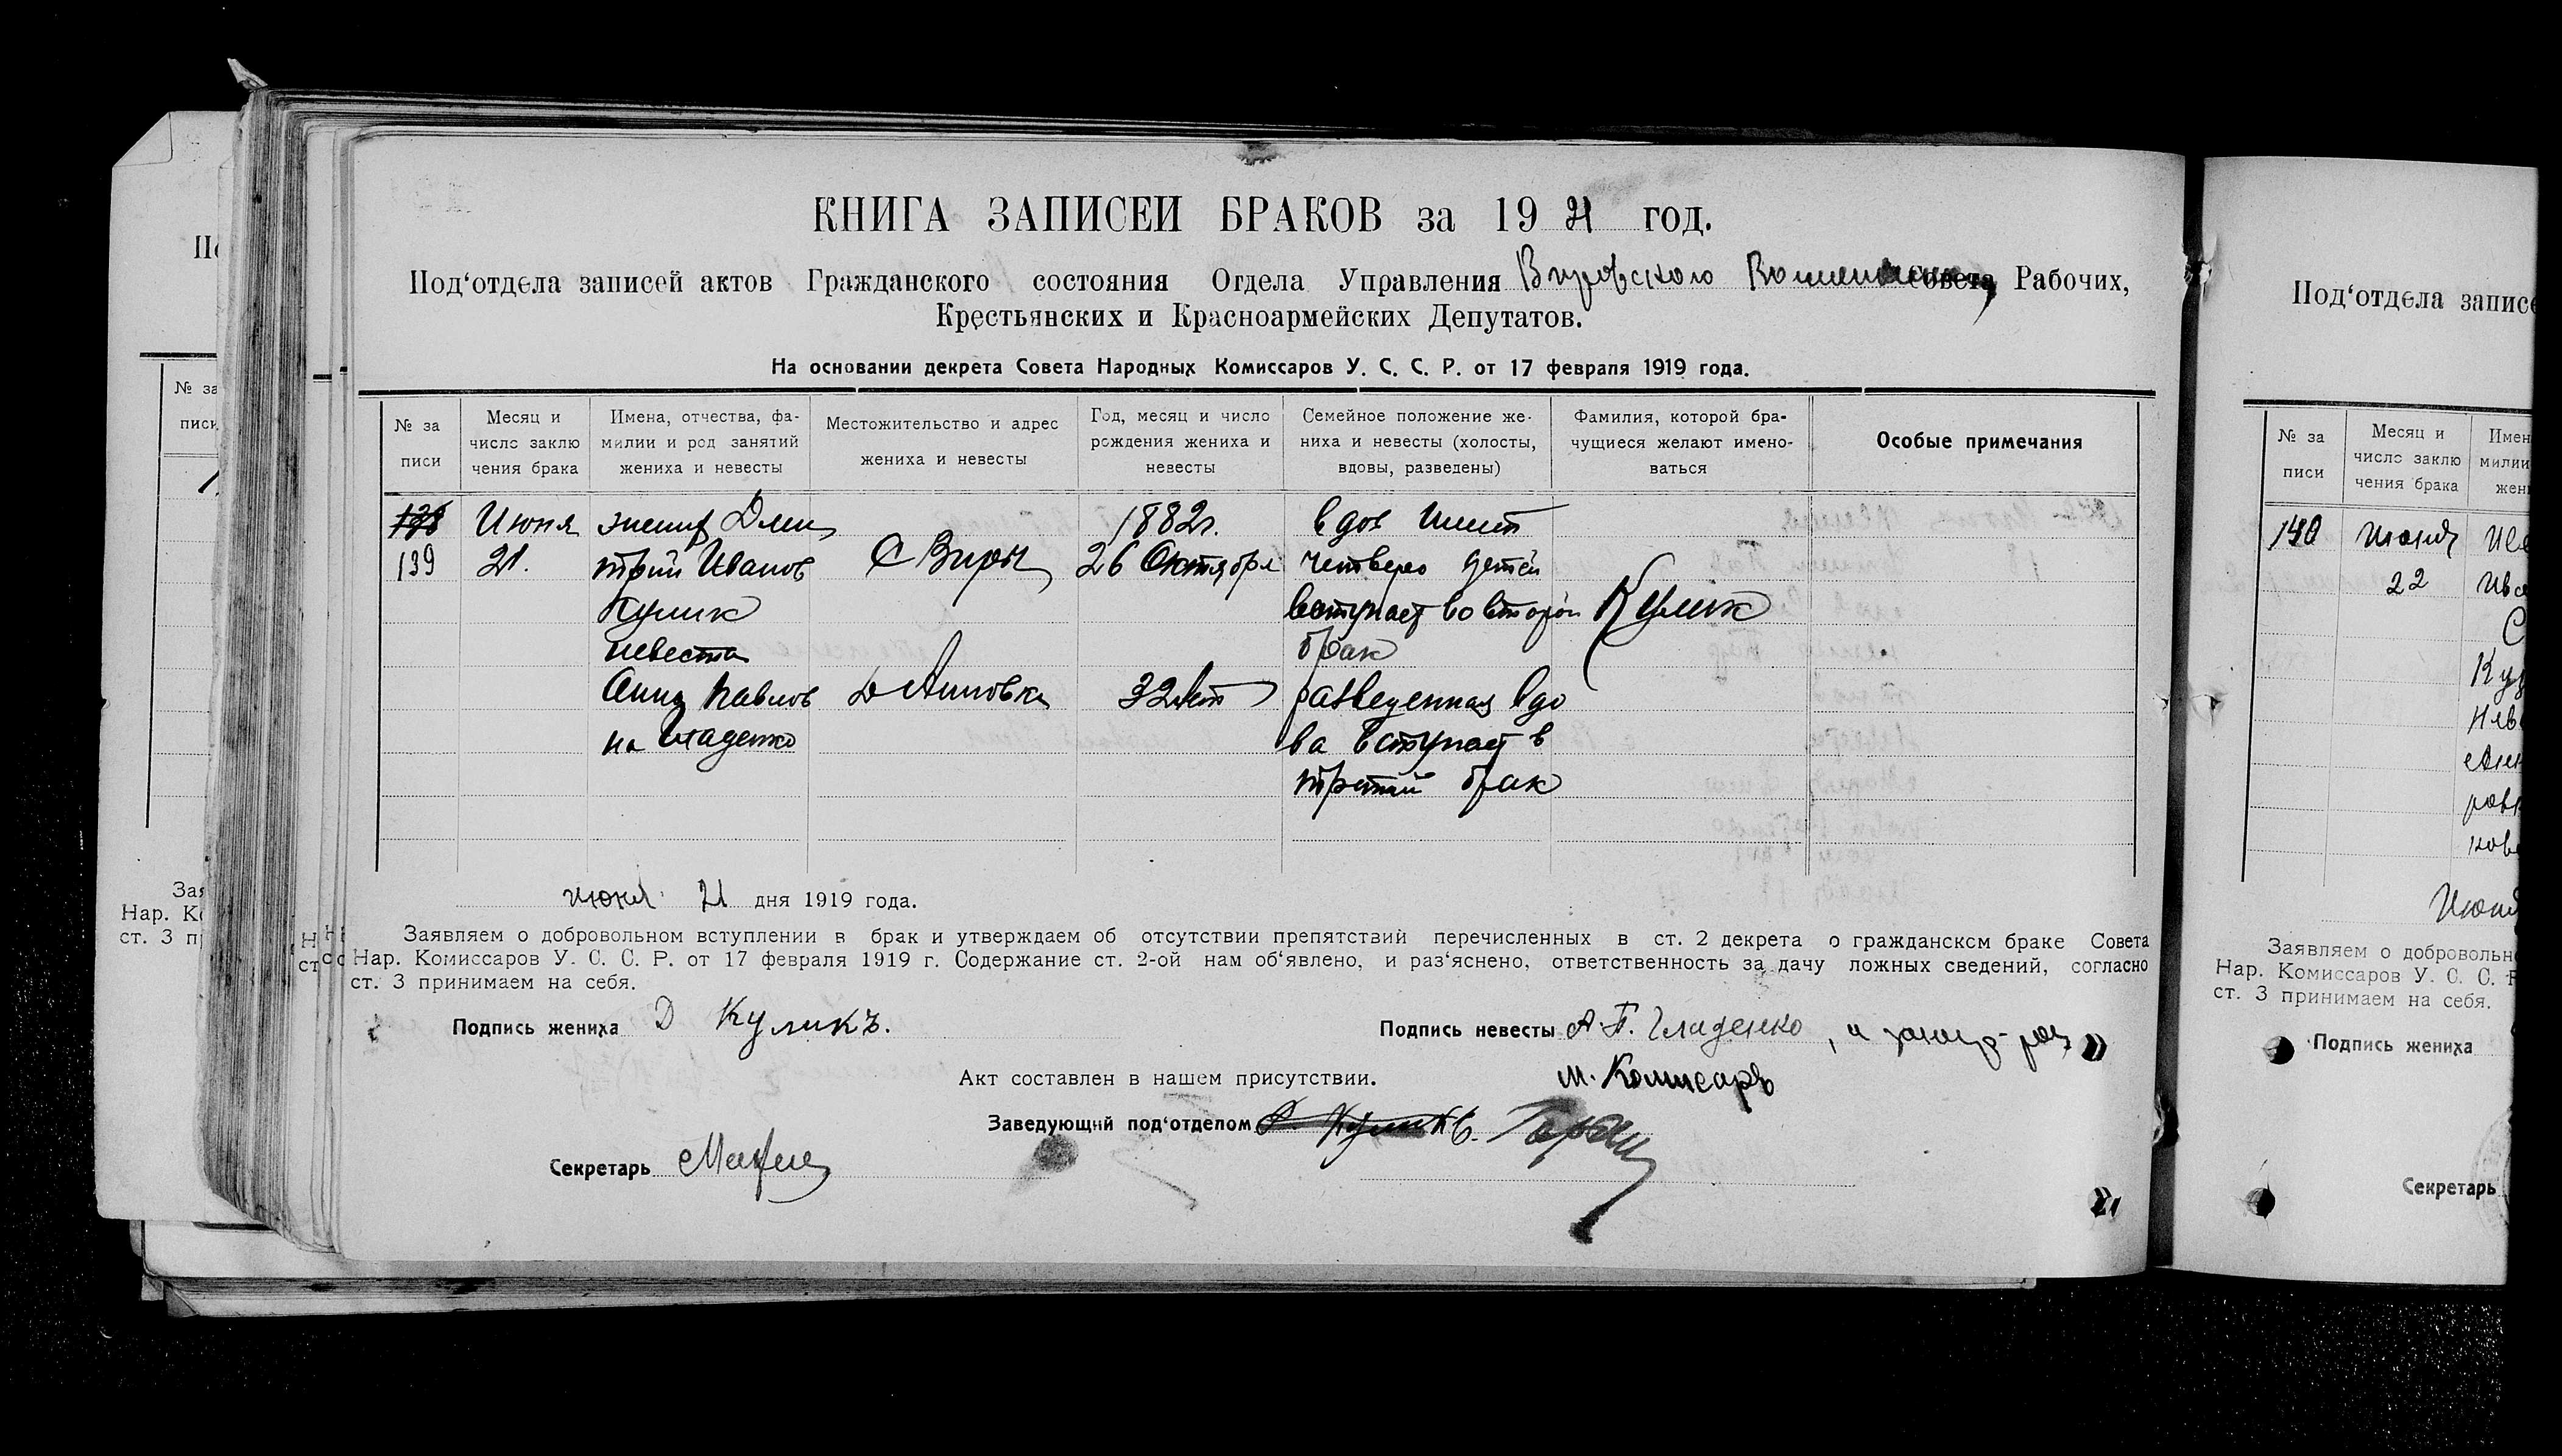 КНИГА ЗАПИСЕЙ БРАКОВ за 1921 год.
Под‘отдела записей актов Гражданского состояния Отдела Управления Вировского Совета Рабочих,
Крестьянских и Красноармейских Депутатов.
На основании декрета Совета Народных Комиссаров У. С. С. Р. от 17 февраля 1919 года.
№ за
писи
Месяц и
число заклю
чения брака
Имена, отчества, фа-
милии и род занятий
жениха и невесты
Местожительство и адрес
жениха и невесты
Год, месяц и число
рождения жениха и
невесты
Семейное положение же-
ниха и невесты (холосты,
вдовы, разведены)
Фамилия, которой бра-
чущиеся желают имено-
ваться
Особые примечания
138
139
Июня
21.
жених Дми
трий Иванов
Кулик
невеста
Анна Павлов
на Гладенко
С Виры
1882г.
26 Октября
32 лет
вдов имеет
четверо детей
вступает во второй
брак
разведенная вдо
ва вступает в
третий брак
Кулик
июня 21 дня 1919 года.
Заявляем о добровольном вступлении в брак и утверждаем об отсутствии препятствий перечисленных в ст. 2 декрета о гражданском браке Совета
Нар. Комиссаров У. С. С. Р. от 17 февраля 1919 г. Содержание ст. 2-ой нам об‘явлено, и раз‘яснено, ответственность за дачу ложных сведений, согласно
ст. 3 принимаем на себя.
Подпись жениха Д Куликъ.
Подпись невесты А. П. Гладенко
Акт составлен в нашем присутствии.
М. Комисаръ
Заведующий под‘отделом
Секретарь
Под‘отдела записе
№ за
писи
Месяц и
число заклю
чения брака
Имен
милии
жен
140
Июня
22
Ива
Нев
Июня
Заявляем о добровольн
Нар. Комиссаров У. С. С. Р
ст. 3 принимаем на себя.
Подпись жениха
Секретарь
№ за
писи
Зая
Нар. К
ст. 3 п